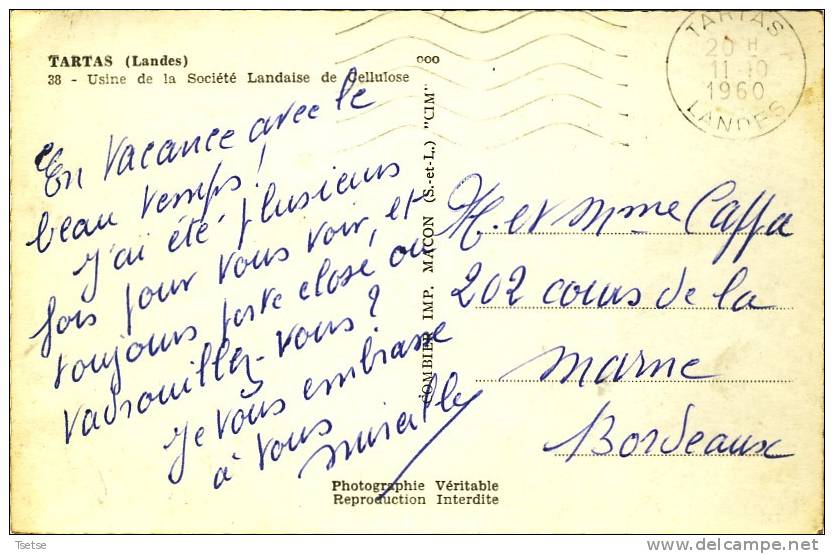 TARTAS (Landes)
38 - Usine de la Société Landaise de Cellulose
ooo
TARTAS
20 H
11-10
1960
LANDES
En vacance avec le
beau temps!
J'ai été plusieurs
fois pour vous voir, et
toujours porte close où
vadrouillez-vous?
Je vous embrasse
à tous
Mireille
COMBIER IMP. MACON (S.-et-L.) "CIM"
M. et Mme Caffa
202 cours de la
Marne
Bordeaux
Photographie Véritable
Reproduction Interdite
Tsetse
delcampe.net